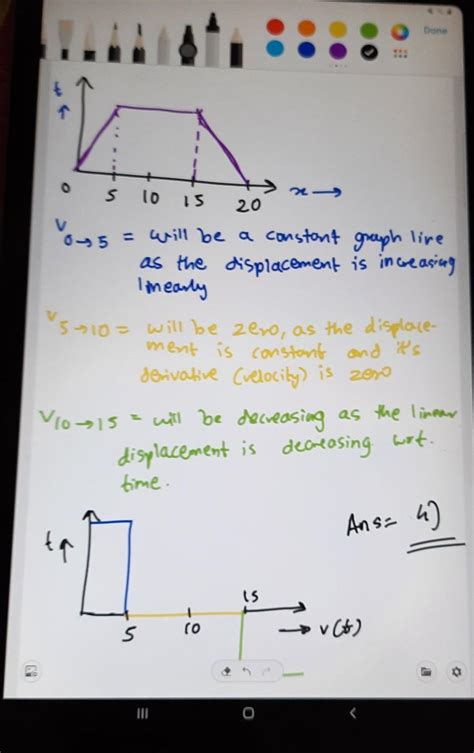 Done
t
0 5 10 15 20 x
V0→5 = will be a constant graph line
as the displacement is increasing
linearly
V5→10 = will be zero, as the displace-
ment is constant and it's
derivative (velocity) is zero
V10→15 = will be decreasing as the linear
displacement is decreasing wrt.
time.
Ans= 4)
t
15
5 10 v(t)